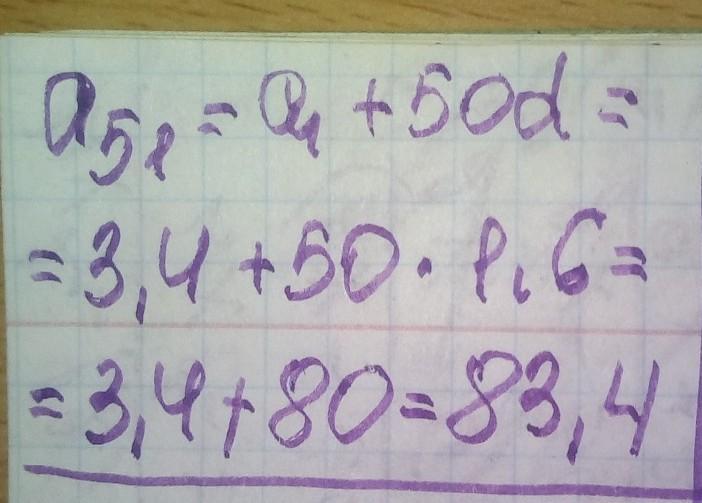 a₅₁ = a₁ + 50d =
= 3,4 + 50 · 1,6 =
= 3,4 + 80 = 83,4